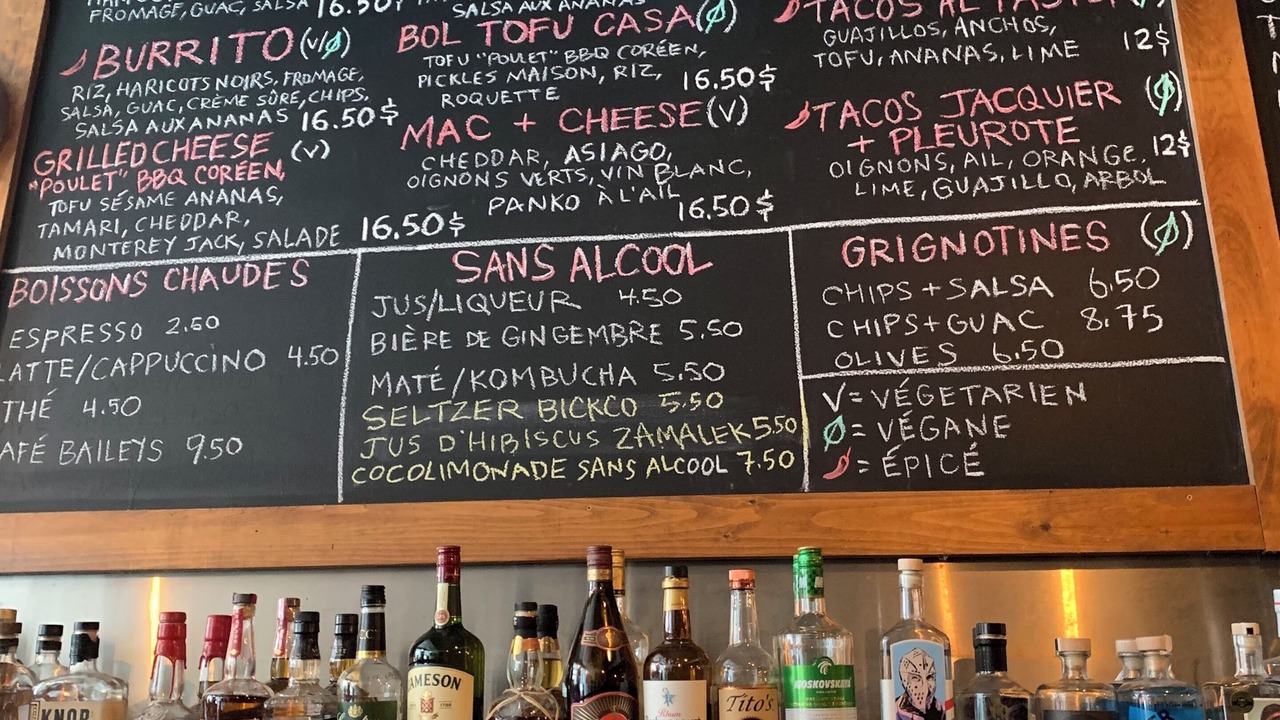 FROMAGE, GUAC, SALSA 16.50
BURRITO (V/Ø)
RIZ, HARICOTS NOIRS, FROMAGE,
SALSA, GUAC, CRÈME SÛRE, CHIPS,
SALSA AUX ANANAS 16.50$
GRILLED CHEESE (V)
"POULET" BBQ CORÉEN,
TOFU SÉSAME ANANAS,
TAMARI, CHEDDAR,
MONTEREY JACK, SALADE 16.50$
SALSA AUX ANANAS
BOL TOFU CASA (Ø)
TOFU "POULET" BBQ CORÉEN,
PICKLES MAISON, RIZ,
ROQUETTE 16.50$
MAC + CHEESE (V)
CHEDDAR, ASIAGO,
OIGNONS VERTS, VIN BLANC,
PANKO À L'AIL
16.50$
TACOS AL PASTOR
GUAJILLOS, ANCHOS,
TOFU, ANANAS, LIME 12$
TACOS JACQUIER (Ø)
+ PLEUROTE
OIGNONS, AIL, ORANGE, 12$
LIME, GUAJILLO, ARBOL
BOISSONS CHAUDES
ESPRESSO 2.50
LATTE/CAPPUCCINO 4.50
THÉ 4.50
AFÉ BAILEYS 9.50
SANS ALCOOL
JUS/LIQUEUR 4.50
BIÈRE DE GINGEMBRE 5.50
MATÉ/KOMBUCHA 5.50
SELTZER BICKCO 5.50
JUS D'HIBISCUS ZAMALEK 5.50
COCOLIMONADE SANS ALCOOL 7.50
GRIGNOTINES (Ø)
CHIPS + SALSA 6.50
CHIPS + GUAC 8.75
OLIVES 6.50
V = VÉGETARIEN
Ø = VÉGANE
= ÉPICÉ
KNOB
JAMESON
Rhum
Tito's
MOSKOVSKAYA